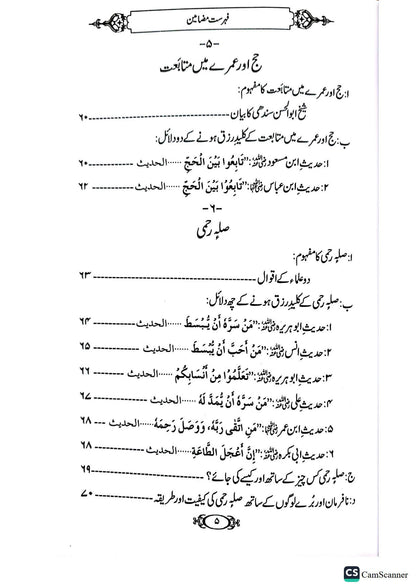 فہرست مضامین
-۵-
حج اور عمرے میں متابعت
ا: حج اور عمرے میں متابعت کا مفہوم:
شیخ ابوالحسن سندھی کا بیان ---------- ۶۰
ب: حج اور عمرے میں متابعت کے کلیدِ رزق ہونے کے دو دلائل:
۱: حدیث ابن مسعود رضی اللہ عنہ: ”تَابِعُوْا بَيْنَ الْحَجِّ ...... الحدیث ---------- ۶۰
۲: حدیث ابن عباس رضی اللہ عنہما: ”تَابِعُوْا بَيْنَ الْحَجِّ ...... الحدیث ---------- ۶۲
-۶-
صلہ رحمی
ا: صلہ رحمی کا مفہوم:
دو علماء کے اقوال ---------- ۶۳
ب: صلہ رحمی کے کلیدِ رزق ہونے کے چھ دلائل:
۱: حدیث ابو ہریرہ رضی اللہ عنہ: ”مَنْ سَرَّهُ أَنْ يُّبْسَطَ ...... الحدیث ---------- ۶۴
۲: حدیث انس رضی اللہ عنہ: ”مَنْ أَحَبَّ أَنْ يُّبْسَطَ ...... الحدیث ---------- ۶۵
۳: حدیث ابو ہریرہ رضی اللہ عنہ: ”تَعَلَّمُوْا مِنْ أَنْسَابِكُمْ ---------- ۶۶
۴: حدیث علی رضی اللہ عنہ: ”مَنْ سَرَّهُ أَنْ يُّمَدَّ لَهُ ...... الحدیث ---------- ۶۷
۵: حدیث ابن عمر رضی اللہ عنہما: ”مَنِ اتَّقٰى رَبَّهُ، وَوَصَلَ رَحِمَهُ ...... الحدیث --- ۶۸
۶: حدیث ابی بکرہ رضی اللہ عنہ: ”إِنَّ أَعْجَلَ الطَّاعَةِ ...... الحدیث ---------- ۶۸
ج: صلہ رحمی کس چیز کے ساتھ اور کیسے کی جائے؟ ---------- ۶۹
د: نافرمان اور بُرے لوگوں کے ساتھ صلہ رحمی کی کیفیت اور طریقہ ---------- ۷۰
۵
CS CamScanner